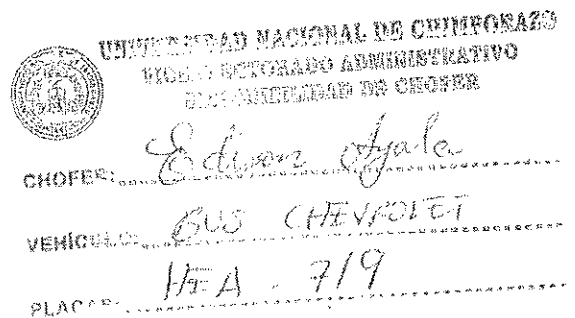 UNIVERSIDAD NACIONAL DE CHIMBORAZO
VICERRECTORADO ADMINISTRATIVO
DISPONIBILIDAD DE CHOFER
CHOFER: Edison Ayala
VEHÍCULO: BUS CHEVROLET
PLACAS: HEA - 719